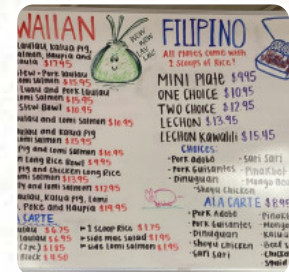 WAIIAN
Laulau, Kalua Pig,
Salmon, Haupia and
$17.95
Stew - Pork Laulau
Lomi Salmon $15.95
Luau and Pork Laulau
Lomi Salmon $15.95
Stew Bowl $10.95
Laulau and Lomi Salmon $16.95
Laulau and Kalua Pig
Lomi Salmon $15.95
Pig and Lomi Salmon $16.95
Long Rice Bowl $9.95
Pig and Chicken Long Rice
Lomi Salmon $13.95
and Lomi Salmon $12.95
Laulau, Kalua Pig, Lomi
Poke and Haupia $19.95
A CARTE
$6.75
Laulau $6.95
(2 pc) $1.85
Block $4.50
1 Scoop Rice $1.75
Side Mac Salad $1.95
Side Tossed $1.95
NEW
NEW
FILIPINO
All Plates come with
2 scoops of Rice!
MINI Plate $9.95
ONE CHOICE $10.95
TWO CHOICE $12.95
LECHON $13.95
LECHON Kawalili $15.95
CHOICES:
- Pork Adobo
- Pork Guisantes
- Dinuguan
- Shoyu Chicken
- Sari Sari
- Pinakbet
- Mongo Bea
ALA CARTE $8.95
- Pork Adobo
- Pork Guisantes
- Dinuguan
- Shoyu Chicken
- Sari Sari
- Pinak
- Mongo
- Kalua
- Beef S
- Chick
Squid